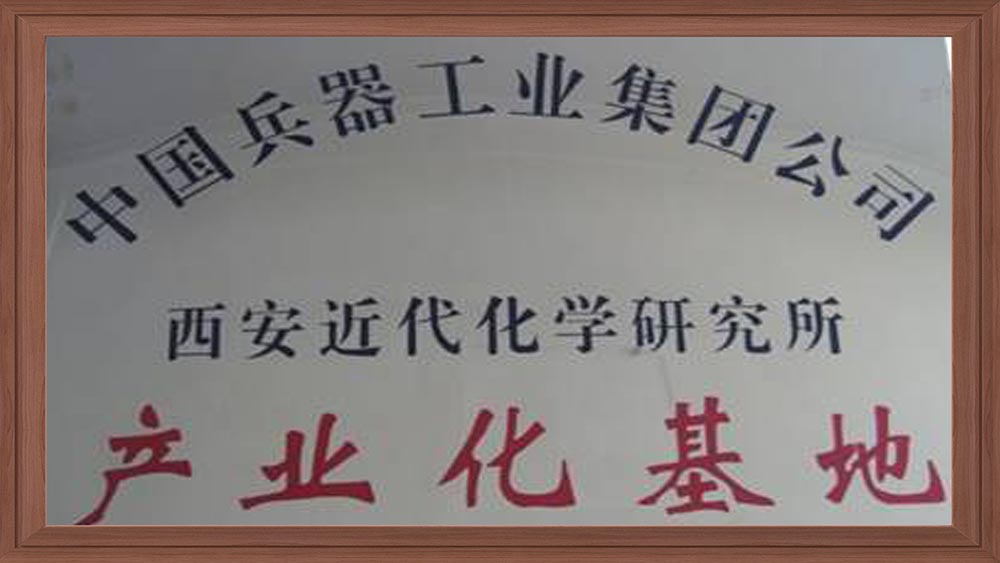 中国兵器工业集团公司
西安近代化学研究所
产业化基地